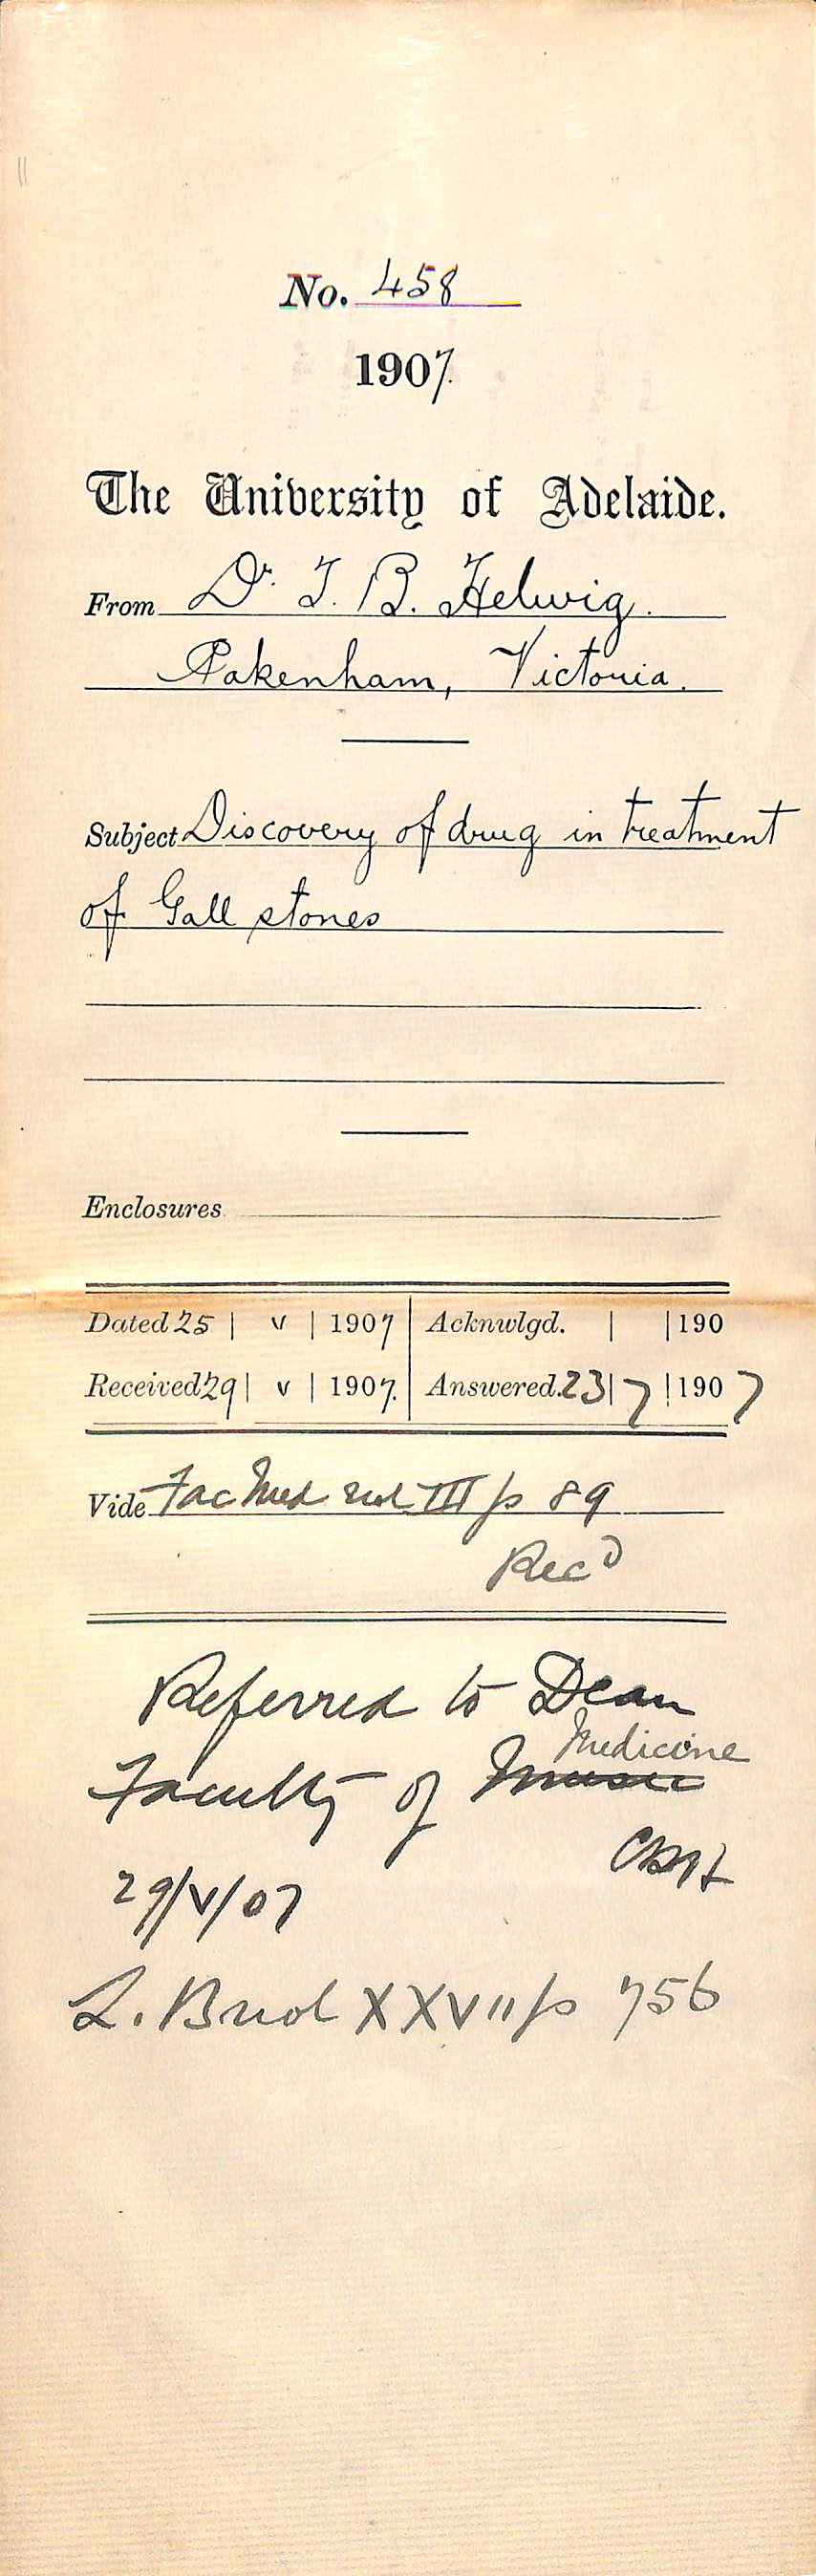 No. 458
1907.
The University of Adelaide.
From Dr. T. B. Helwig.
Pakenham, Victoria.
Subject Discovery of drug in treatment
of Gall stones
Enclosures
Dated 25 | v | 1907 Acknwlgd. | | 190
Received 29 | v | 1907. Answered. 23 | 7 | 1907
Vide Fac Med vol III p 89
Recd
Referred to Dean
Medicine
Faculty of Music
29/V/07
L. B vol XXVII p 756